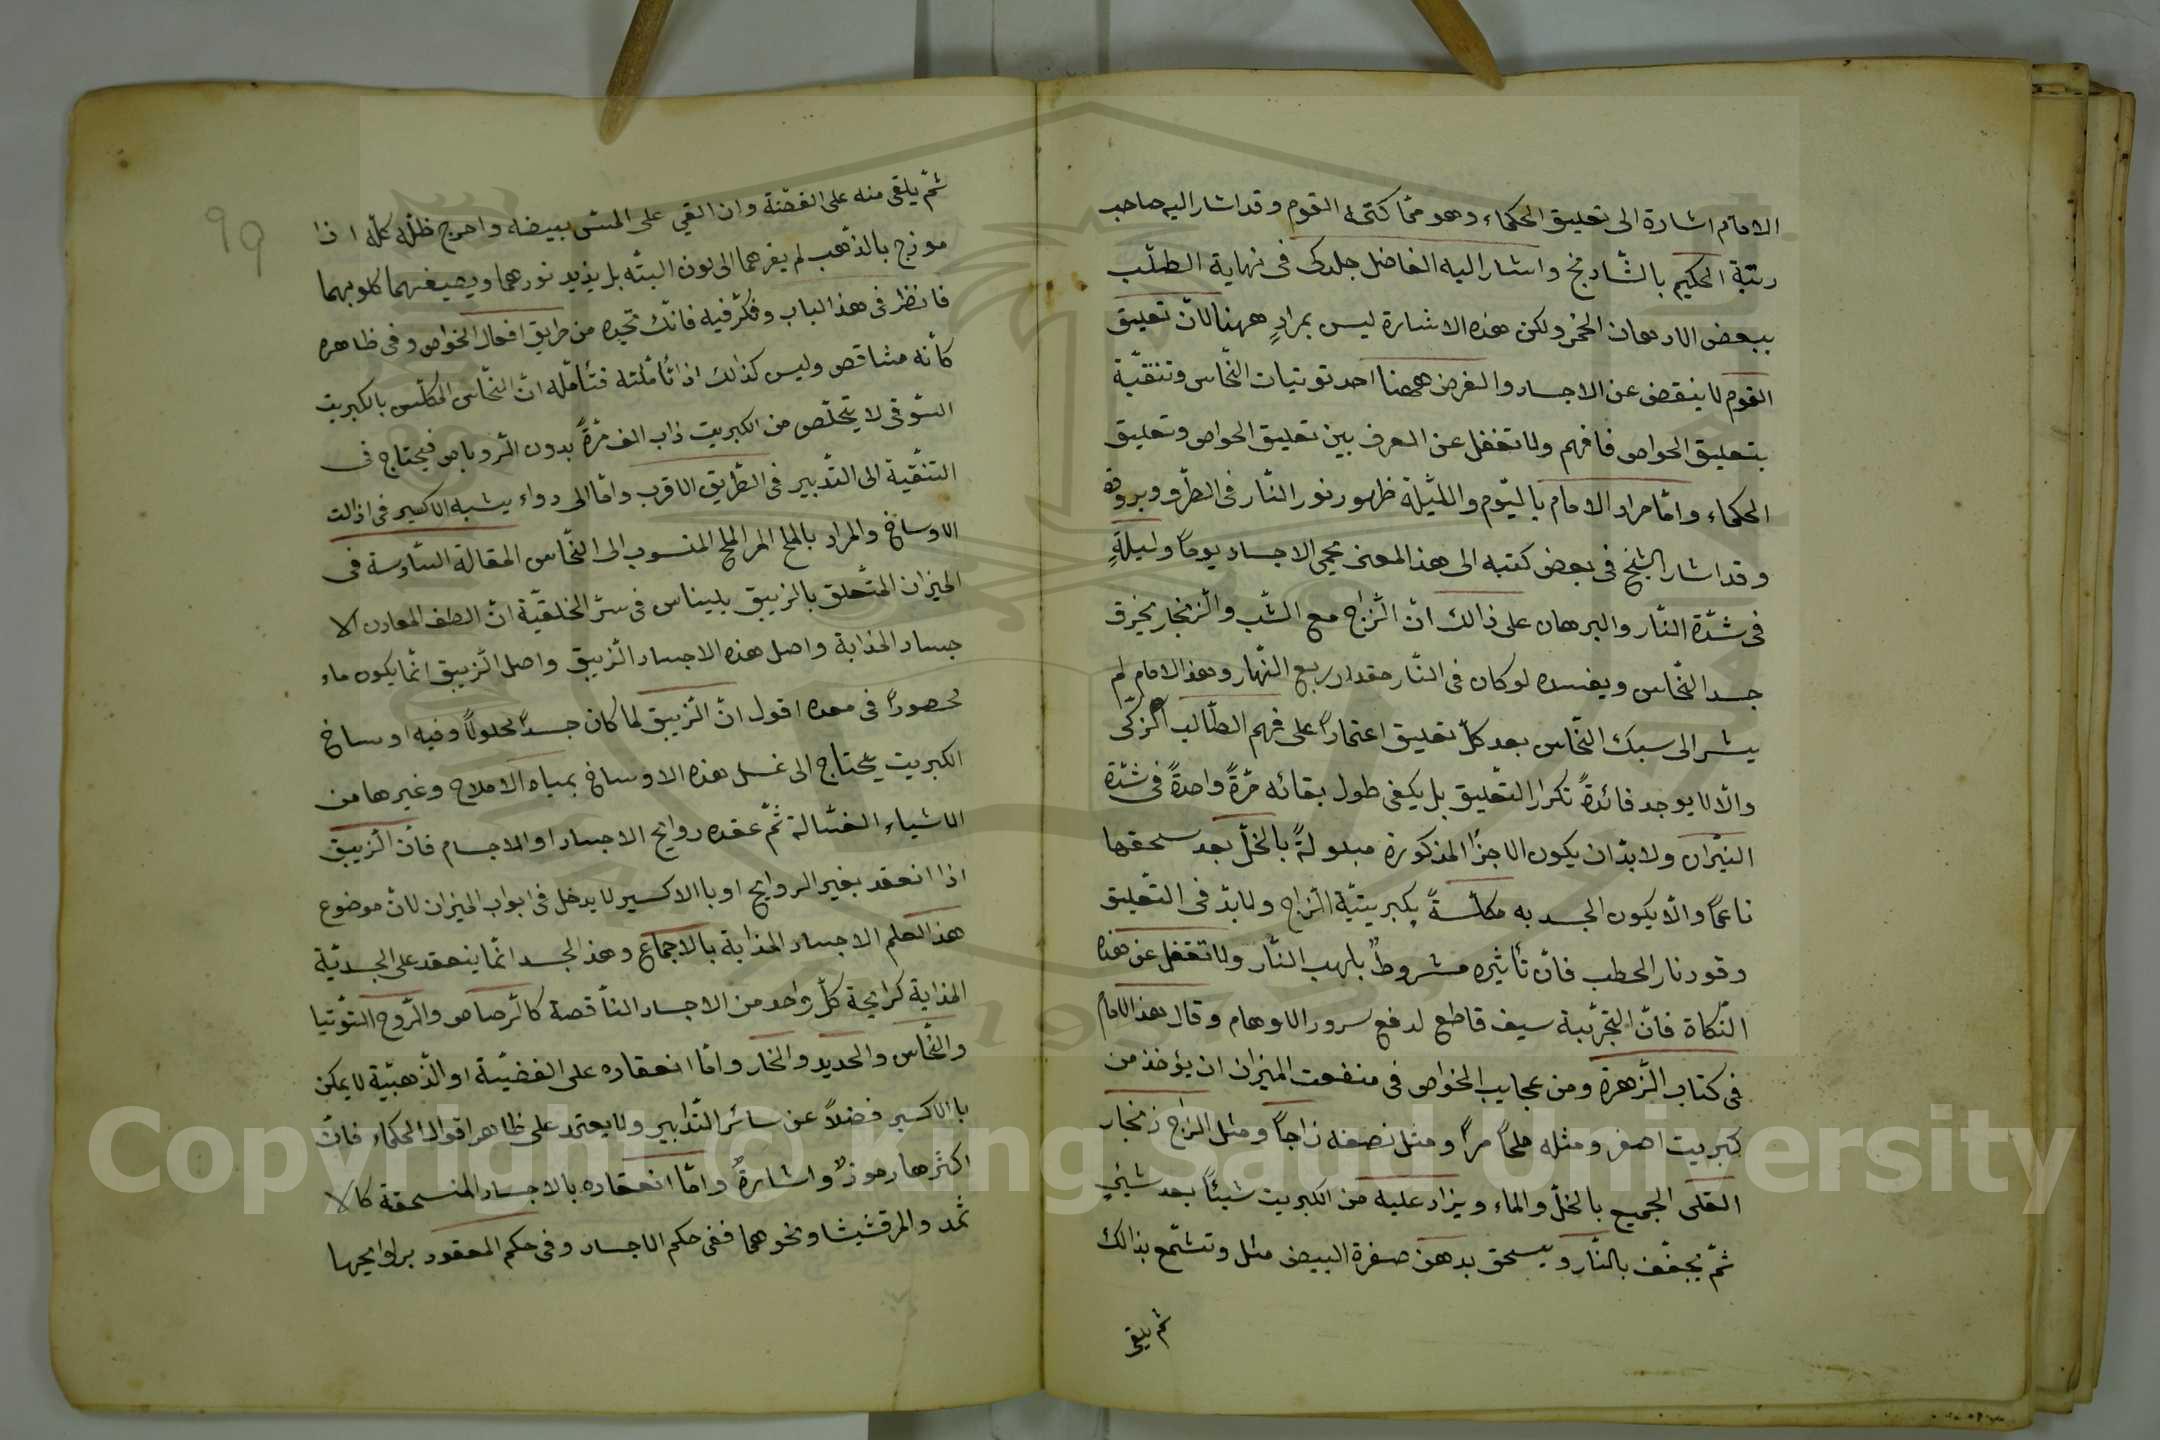 الامام اشارة الى تعليق الحكماء وهو ممّا كتمه القوم وقد اشار اليه صاحب
رتبة الحكيم بالشّادنج واشار اليه الفاضل جلدكى فى نهاية الطّلب
ببعض الادهان الحمر ولكن هذه الاشارة ليس بمرادٍ ههنا لانّ تعليق
القوم لا ينقض عن الاجساد والغرض ههنا احد توتيات النّحاس وتنقيّة
بتعليق الخواص فافهم ولا تغفل عن الفرق بين تعليق الخواص وتعليق
الحكماء وامّا مراد الامام باليّوم والليّلة ظهور نور النّار فى الطّرو وبروقه
وقد اشار الشّيخ فى بعض كتبه الى هذا المعنى يحمى الاجساد يوماً وليلةٍ
فى شدّة النّار والبرهان على ذالك انّ الزّاج مع الشّب والزّنجار يخرق
جسد النّحاس ويفسده لو كان فى النّار مقدار ربع النّهار وهذا الامام لم
يشر الى سبك النّحاس بعد كلّ تعليق اعتماداً على فهم الطّالب الزكّى
والّا لا يوجد فائدةً تكرار التّعليق بل يكفى طول بقائه مرّةً واحدةً فى شدّة
النيّران ولا بدّ ان يكون الاجزأ المذكورة مبلولةً بالخلّ بعد سحقها
ناعماً والّا يكون الجسد به مكلسةً بكبريتيّة الزّاج ولا بدّ فى التّعليق
وقود نار الحطب فانّ تأثيره مشروطٌ بلهب النّار ولا تغفل عن هذه
النّكاة فانّ التّجرّبية سيف قاطع لدفع سرور الاوهام وقال هذا الامام
فى كتاب الزّهرة ومن عجايب الخواص فى منفعت الميزان ان يؤخذ من
كبريت اصفر ومثله ملحاً مراً ومثل نصفه زاجاً ومثل الزاج زنجار
القلى الجميع بالخلّ والماء ويزاد عليه من الكبريت شيئاً بعد شيئٍ
ثمّ يجفّف بالنّار ويسحق بدهن صفرة البيض مثل وتشمّع بذالك
ثم يلقى
99
ثمّ يلقى منه على الفضّة وان القي على المشى بيبضه واخرج ظلّه كلّه اذا
موزج بالذّهب لم يغرهما الى لون البتّه بل يزيد نورهما ويصبغهما كلوبهما
فانظر فى هذا الباب وفكّر فيه فانّك تجده من طريق افعال الخواص وفى ظاهره
كأنّه متناقص وليس كذلك اذا تأملته فتأمّله انّ النّحاس المكلّس بالكبريت
السّوقى لا يتخلّص من الكبريت ذاب الف مرّةً بدون الرّوباص فيحتاج فى
التنقّية الى التّدبير فى الطّريق الاقرب وامّا الى دواء يشبه الاكسير فى اذالت
الاوساخ والمراد بالملح المر الملح المنسوب الى النّحاس المقالة السّادسة فى
الميزان المتّعلق بالزيبق بليناس فى سرّ الخلقيّة انّ الطف المعادن الا
جساد المذابة واصل هذه الاجساد الزّيبق واصل الزّيبق انّما يكون ماء
محصوراً فى معده اقول انّ الزّيبق لما كان جسداً محلولاً وفيه اوساخ
الكبريت يحتاج الى غسل هذه الاوساخ بمياه الاملاح وغيرها من
الاشياء الغسّالة ثمّ عقده روايح الاجساد او الاجسام فانّ الزّيبق
اذا انعقد بغير الروايح او بالاكسير لا يدخل فى ابواب الميزان لانّ موضوع
هذا العلم الاجساد المذابة بالاجماع وهذا الجسد انّما ينعقد على الجسديّة
المذابة كرايحة كلّ واحد من الاجساد النّاقصة كالرّصاص والرّوح التوّتيا
والنّحاس والحديد والخار وامّا انعقاده على الفضيّة او الذّهبيّة لا يمكن
بالاكسير فضلاً عن سائر التّدابير ولا يعتمد على ظاهر اقوال الحكماء فانّ
اكثرها رموزٌ واشارةٌ وامّا انعقاده بالاجساد المنسحقة كالا
ثمد والمرقشيشا ونحوهما ففى حكم الاجساد وفى حكم المعقود بروايحها
Copyright © King Saud University